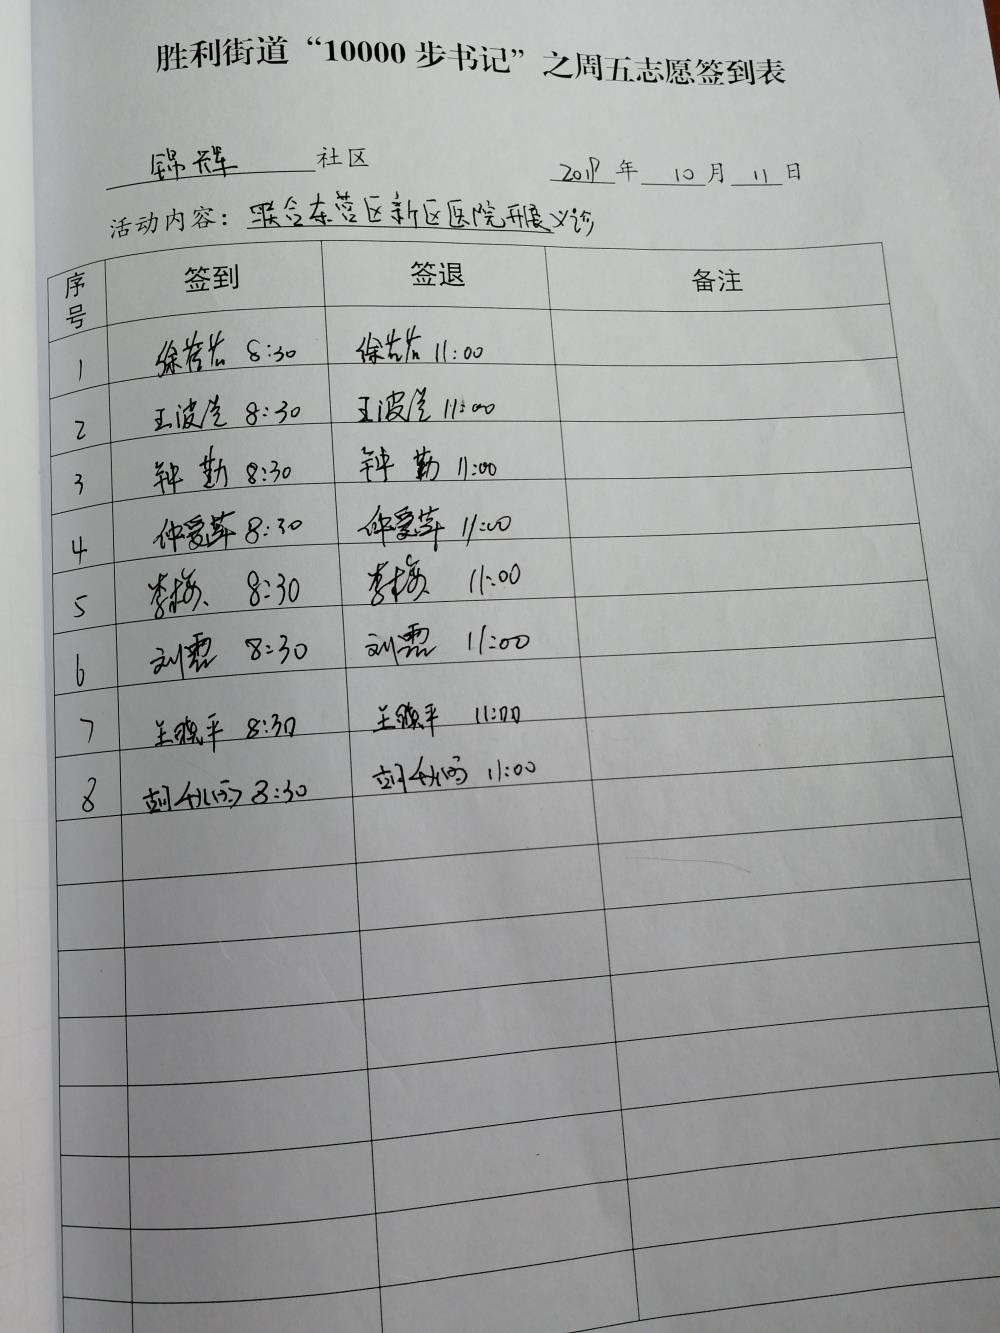 胜利街道“10000步书记”之周五志愿签到表
锦华 社区 2019年10月11日
活动内容：联合东营区新区医院开展义诊
序号 签到 签退 备注
1 徐若若 8:30 徐若若 11:00
2 王波 8:30 王波 11:00
3 钟勤 8:30 钟勤 11:00
4 仲爱萍 8:30 仲爱萍 11:00
5 李梅 8:30 李梅 11:00
6 刘霞 8:30 刘霞 11:00
7 王晓平 8:30 王晓平 11:00
8 胡秋 8:30 胡秋 11:00